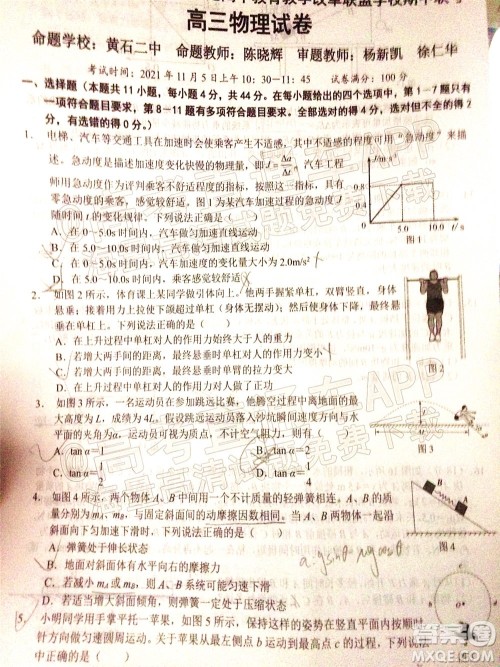 高三物理试卷
命题学校：黄石二中 命题教师：陈晓辉 审题教师：杨新凯 徐仁华
考试时间：2021年11月5日上午10：30—11：45 试卷满分：100分
一、选择题（本题共11小题，每小题4分，共44分。在每小题给出的四个选项中，第1－7题只有
一项符合题目要求，第8－11题有多项符合题目要求。全部选对的得4分，选对但不全的得2分，
有选错的得0分。）
1. 电梯、汽车等交通工具在加速时会使乘客产生不适感，其中不适感的程度可用“急动度”来描
述。急动度是描述加速度变化快慢的物理量，即J=Δa/Δt，汽车工程
师用急动度作为评判乘客不舒适程度的指标，具有
零急动度的乘客，感觉较舒适。图1为某汽车加速过程的急动度J
随时间t的变化规律，下列说法正确的是（ ）
A．在0～5.0s时间内，汽车做匀加速直线运动
B．在5.0～10.0s时间内，汽车做匀加速直线运动
C．在0～5.0s时间内，汽车加速度的变化量大小为2.0m/s²
D．在5.0～10.0s时间内，乘客感觉较舒适
J/m·s³
1.0
0 5.0 10.0 t/s
图1
2. 如图2所示，体育课上某同学做引体向上，他两手握紧单杠，双臂竖直，身体
悬垂；接着用力上拉使下颌超过单杠（身体无摆动）；然后使身体下降，最终悬
垂在单杠上。下列说法正确的是（ ）
A．在上升过程中单杠对人的作用力始终大于人的重力
B．若增大两手间的距离，最终悬垂时单杠对人的作用力变小
C．若增大两手间的距离，最终悬垂时单臂的拉力变大
D．在下降过程中单杠对人的作用力小于单杠对人的作用力
图2
3. 如图3所示，某同学在参加跳远比赛，他腾空过程中离地面的最
大高度为L，成绩为4L。假设跳远运动员落入沙坑瞬间速度方向与水
平面的夹角为α，运动员可视为质点，不计空气阻力。则有（ ）
A．tanα=2
B．tanα=1
C．tanα=1/2
D．tanα=1/4
图3
4. 如图4所示，两个物体A、B中间用一轻质的轻弹簧相连，A、B的
质量分别为mA、mB，与固定斜面间的动摩擦因数相同。当A、B一起沿
斜面向下匀加速下滑时，下列说法正确的是（ ）
A．弹簧处于伸长状态
B．地面对斜面体有水平向左的摩擦力
C．若减小mA或mB，则A、B系统可能匀速下滑
D．若适当增大斜面倾角，则弹簧一定处于压缩状态
A
B
图4
5. 小明同学用手掌平托一苹果，如图5所示，保持这样的姿势在竖直平面内按顺时
针方向做匀速圆周运动。关于苹果从最左侧点b运动到最高点c的过程，下列说法
中正确的是（ ）
答案圈
MXQE.COM